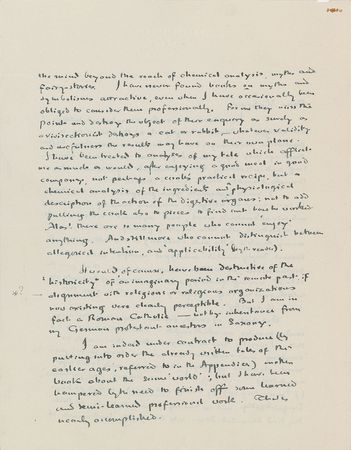 the mind beyond the reach of chemical analysis, myths and
fairy-stories. I have never found books on myths and
symbolisms attractive, even when I have occasionally been
obliged to consider them professionally. For me they miss the
point and destroy the object of their enquiry as surely as
a vivisectionist destroys a cat or rabbit – whatever validity
and usefulness the results may have on their own plane.
I have been treated to analyses of my tale which affect
me as much as would, after enjoying a good meal in good
company, not perhaps a cook's practical recipe, but a
chemical analysis of the ingredients and physiological
description of the action of the digestive organs: not to add
pulling the cook also to pieces to find out how he worked.
Alas! there are so many people who cannot 'enjoy'
anything. And still more who cannot distinguish between
allegorical intention, and 'applicability' (by the reader).
It would, of course, have been destructive of the
'historicity' of an imaginary period in the remote past, if
alignment with religions or religious organizations
now existing were clearly perceptible. But I am in
fact a Roman Catholic – not by inheritance from
my German protestant ancestors in Saxony.
I am indeed under contract to produce (by
putting into order the already written tales of the
earlier ages, referred to in the Appendices) another
book about the same 'world'; but I have been
hampered by the need to finish off some learned
and semi-learned professional work. This is
nearly accomplished.